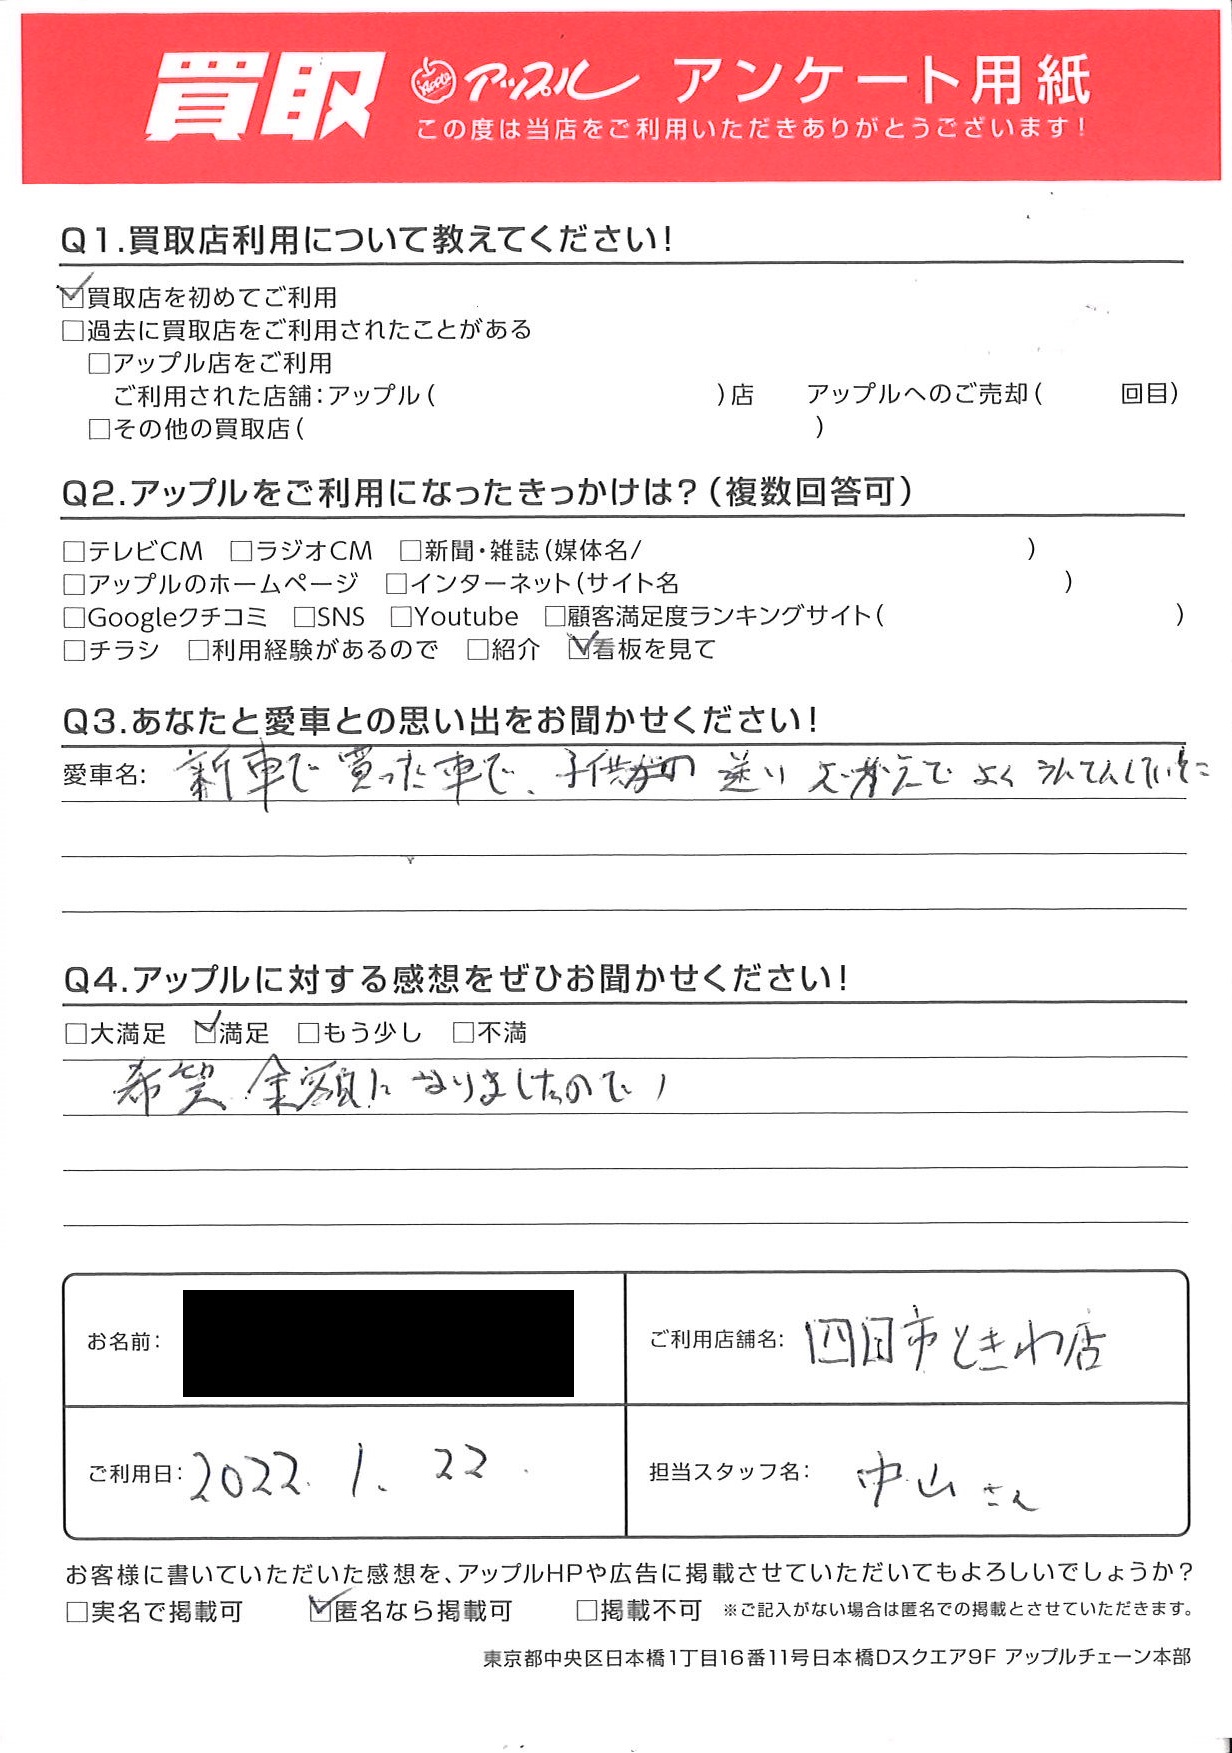 買取 Apple アップル アンケート用紙
この度は当店をご利用いただきありがとうございます!
Q1.買取店利用について教えてください!
☑買取店を初めてご利用
□過去に買取店をご利用されたことがある
□アップル店をご利用
ご利用された店舗:アップル( )店 アップルへのご売却( 回目)
□その他の買取店( )
Q2.アップルをご利用になったきっかけは?(複数回答可)
□テレビCM □ラジオCM □新聞・雑誌(媒体名/ )
□アップルのホームページ □インターネット(サイト名 )
□Googleクチコミ □SNS □Youtube □顧客満足度ランキングサイト( )
□チラシ □利用経験があるので □紹介 ☑看板を見て
Q3.あなたと愛車との思い出をお聞かせください!
愛車名: 新車で買った車で、子供の送りむかえでよく
Q4.アップルに対する感想をぜひお聞かせください!
□大満足 ☑満足 □もう少し □不満
希望金額になりましたので
お名前: ご利用店舗名: 四日市ときわ店
ご利用日: 2022. 1. 22. 担当スタッフ名: 中山さん
お客様に書いていただいた感想を、アップルHPや広告に掲載させていただいてもよろしいでしょうか?
□実名で掲載可 ☑匿名なら掲載可 □掲載不可 ※ご記入がない場合は匿名での掲載とさせていただきます。
東京都中央区日本橋1丁目16番11号日本橋Dスクエア9F アップルチェーン本部